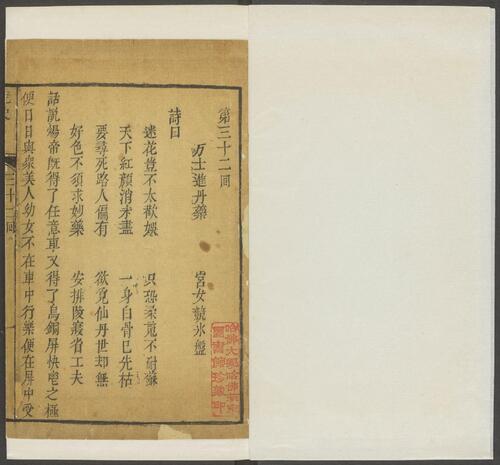 第三十二囘
方士進丹藥　宮女競氷盤
詩曰
迷花豈不太歡娛　只恐柔魂不耐蘇
天下紅顏消未盡　一身白骨已先枯
要尋死路人偏有　欲覓仙丹世却無
好色不須求妙藥　安排陵寢省工夫
話説煬帝旣得了任意車又得了烏銅屏快樂之極
便日日與衆美人幼女不在車中行樂便在屏中受
三十二囘
哈佛大學哈佛燕京
圖書館珍藏印